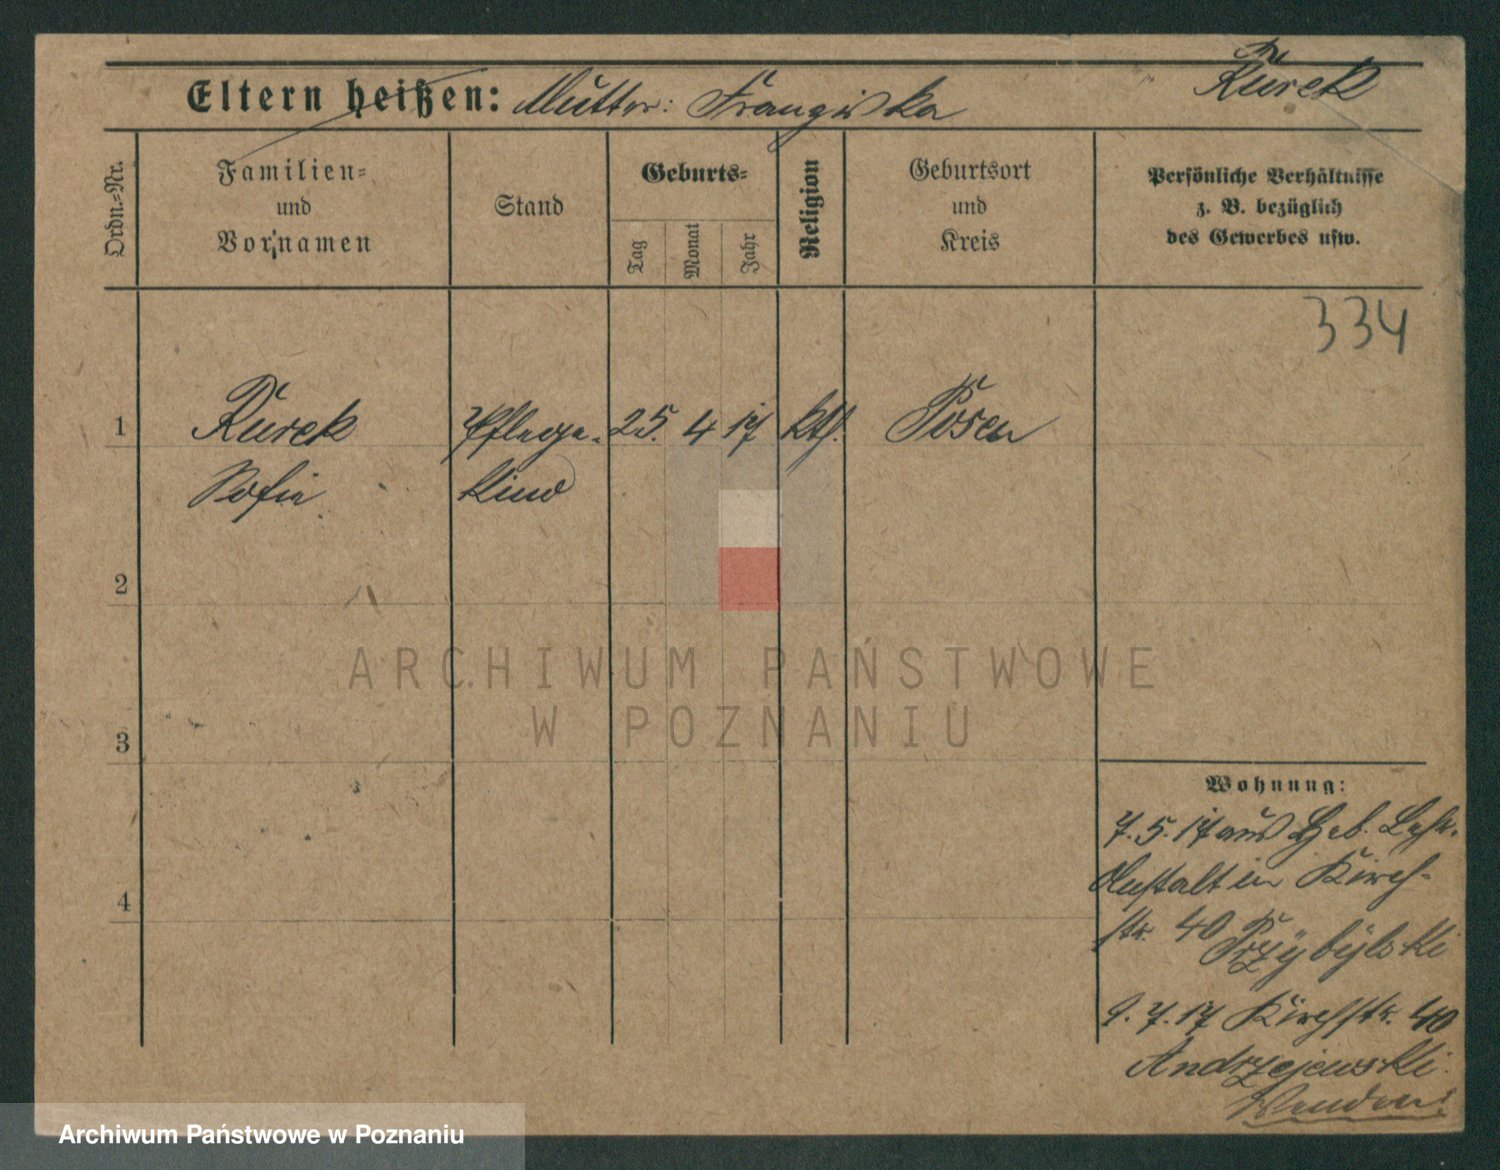 Kurek
Eltern heißen: Mutter: Franziska
Ordn.-Nr.
Familien-
und
Vornamen
Stand
Geburts-
Tag
Monat
Jahr
Religion
Geburtsort
und
Kreis
Persönliche Verhältnisse
z. B. bezüglich
des Gewerbes usw.
334
1 Kurek Pflege- 25. 4 17 kth. Posen
Sofie kind
2
3
4
Wohnung:
7. 5. 17 aus Heb. Lehr-
Anstalt in Kirch-
str. 40 Przybylski
9. 7. 17 Kirchstr. 40
Andrzejewski
Wenden!
ARCHIWUM PAŃSTWOWE
W POZNANIU
Archiwum Państwowe w Poznaniu